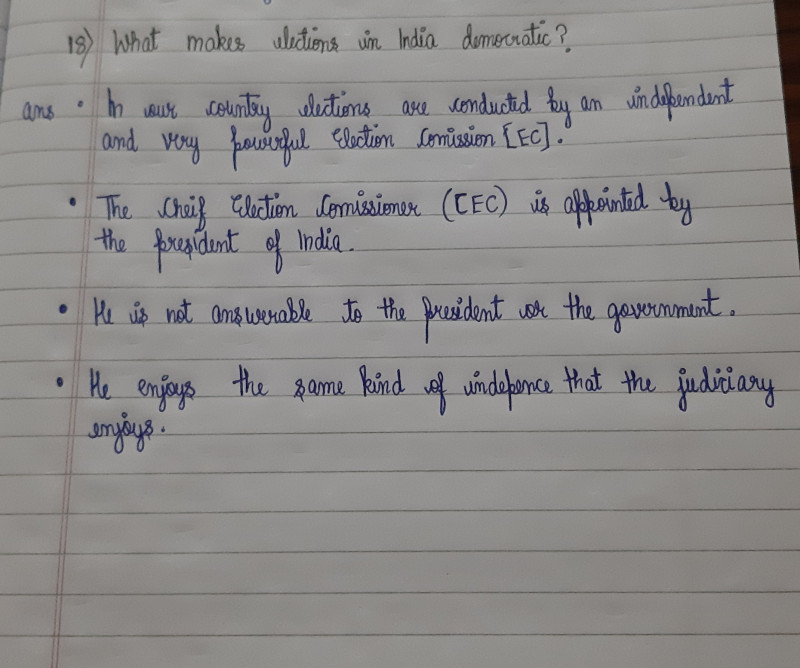 18) What makes elections in India democratic?
ans • In our country elections are conducted by an independent
and very powerful Election Comission [EC].
• The Cheif Election Comissioner (CEC) is appointed by
the president of India.
• He is not answerable to the president or the government.
• He enjoys the same kind of indepence that the judiciary
enjoys.